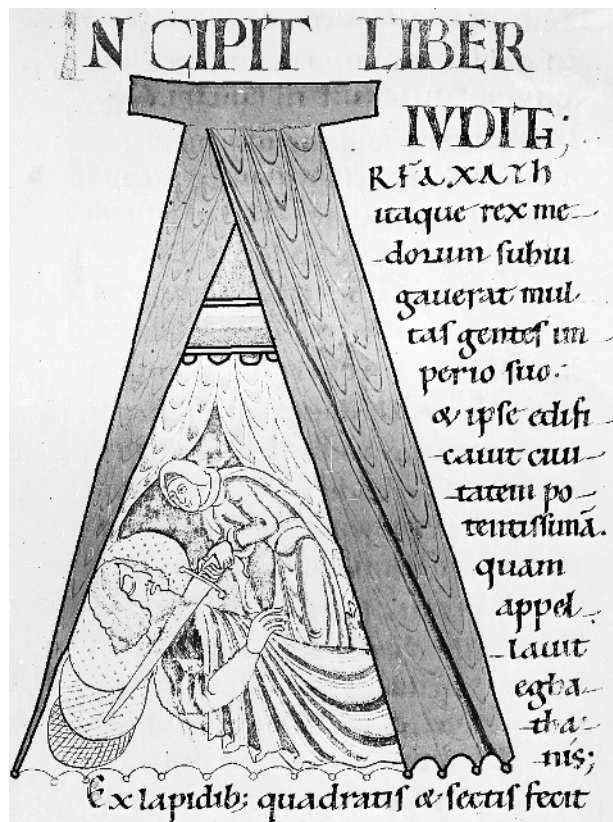 INCIPIT LIBER
A
IUDITH;
RFAXATh
itaque rex me
dorum subiu
gauerat mul
tas gentes im
perio suo.
& ipse edifi
cauit ciui
tatem po
tentissimā.
quam
appel
lauit
egba
tha
nis;
Ex lapidib; quadratis & sectis fecit